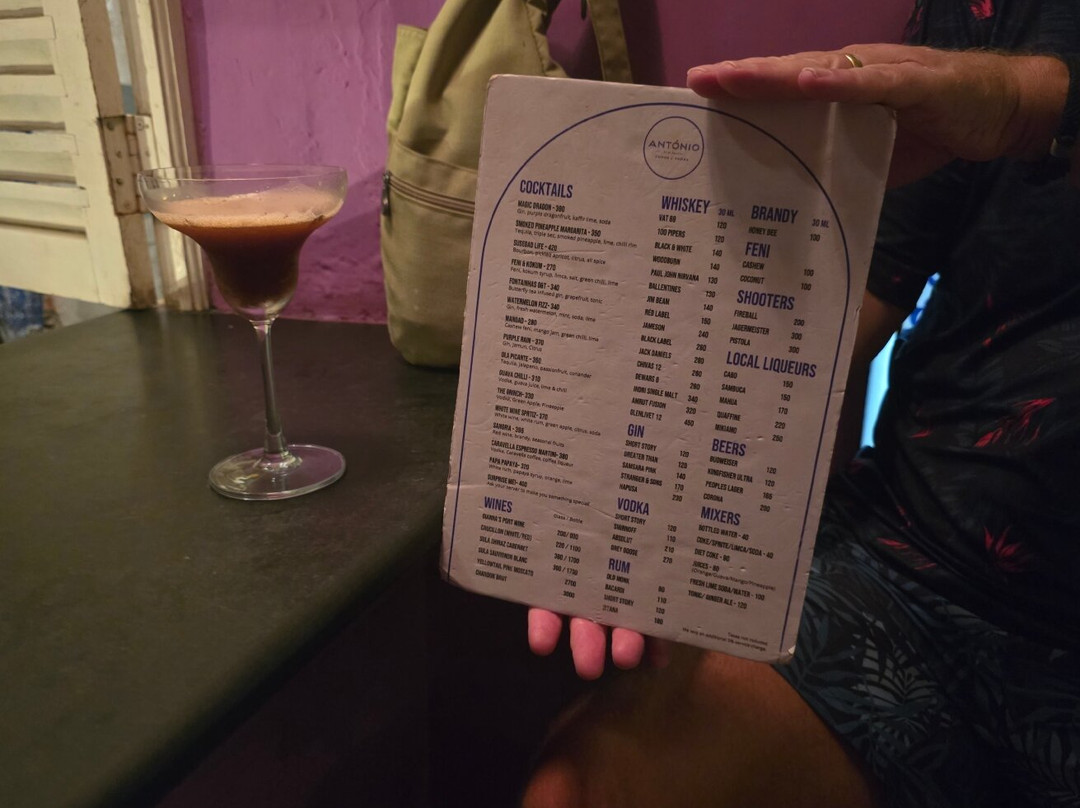 ANTÓNIO
COCKTAILS
MAGIC DRAGON - 380
Gin, purple dragonfruit, kaffir lime, soda
SMOKED PINEAPPLE MARGARITA - 350
Tequila, triple sec, smoked pineapple, lime, chilli rim
SUSEGAD LIFE - 420
Bourbon, grilled apricot, citrus, all spice
FENI & KOKUM - 270
Feni, kokum syrup, limca, salt, green chilli, lime
FONTAINHAS G&T - 340
Butterfly tea infused gin, grapefruit, tonic
WATERMELON FIZZ - 340
Gin, fresh watermelon, mint, soda, lime
MANGAD - 280
Cashew feni, mango jam, green chilli, lime
PURPLE RAIN - 370
Gin, Jamun, Citrus
OLA PICANTE - 350
Tequila, jalapeno, passionfruit, coriander
GUAVA CHILLI - 310
Vodka, guava juice, lime & chilli
THE GRINCH - 330
Vodka, Green Apple, Pineapple
WHITE WINE SPRITZ - 370
White wine, white rum, green apple, citrus, soda
SANGRIA - 395
Red wine, brandy, seasonal fruits
CARAVELLA ESPRESSO MARTINI - 380
Vodka, Caravella coffee, coffee liqueur
PAPA PAPAYA - 320
White rum, papaya syrup, orange, lime
SURPRISE ME! - 400
Ask your server to make you something special
WINES
Glass / Bottle
MARIA'S PORT WINE
CRUCILLON (WHITE/RED) 220 / 1100
SULA SHIRAZ CABERNET 360 / 1700
SULA SAUVIGNON BLANC 360 / 1700
YELLOWTAIL PINK MOSCATO 2700
CHANDON BRUT 3000
WHISKEY 30 ML
VAT 69 120
100 PIPERS 120
BLACK & WHITE 140
WOODBURN 140
PAUL JOHN NIRVANA 130
BALLENTINES 130
JIM BEAN 140
RED LABEL 160
JAMESON 240
BLACK LABEL 280
JACK DANIELS 280
CHIVAS 12 280
DEWARS 8 280
INDRI SINGLE MALT 340
AMRUT FUSION 320
GLENLIVET 12 450
GIN
SHORT STORY 120
GREATER THAN 120
SAMSARA PINK 140
STRANGER & SONS 170
HAPUSA 230
VODKA
SHORT STORY 120
SMIRNOFF 110
ABSOLUT 210
GREY GOOSE 270
RUM
OLD MONK 80
BACARDI 110
SHORT STORY 120
180
BRANDY 30 ML
HONEY BEE 100
FENI
CASHEW 100
COCONUT 100
SHOOTERS
FIREBALL 200
JAGERMEISTER 300
PISTOLA 300
LOCAL LIQUEURS
CABO 150
SAMBUCA 150
MAHUA 170
QUAFFINE 220
MIKIAMO 250
BEERS
BUDWEISER 120
KINGFISHER ULTRA 120
PEOPLES LAGER 180
CORONA 250
MIXERS
BOTTLED WATER - 40
COKE/SPRITE/LIMCA/SODA - 40
DIET COKE - 80
JUICES - 80
(Orange/Guava/Mango/Pineapple)
FRESH LIME SODA/WATER - 100
TONIC/ GINGER ALE - 120
Taxes not included
We levy an additional 5% service charge